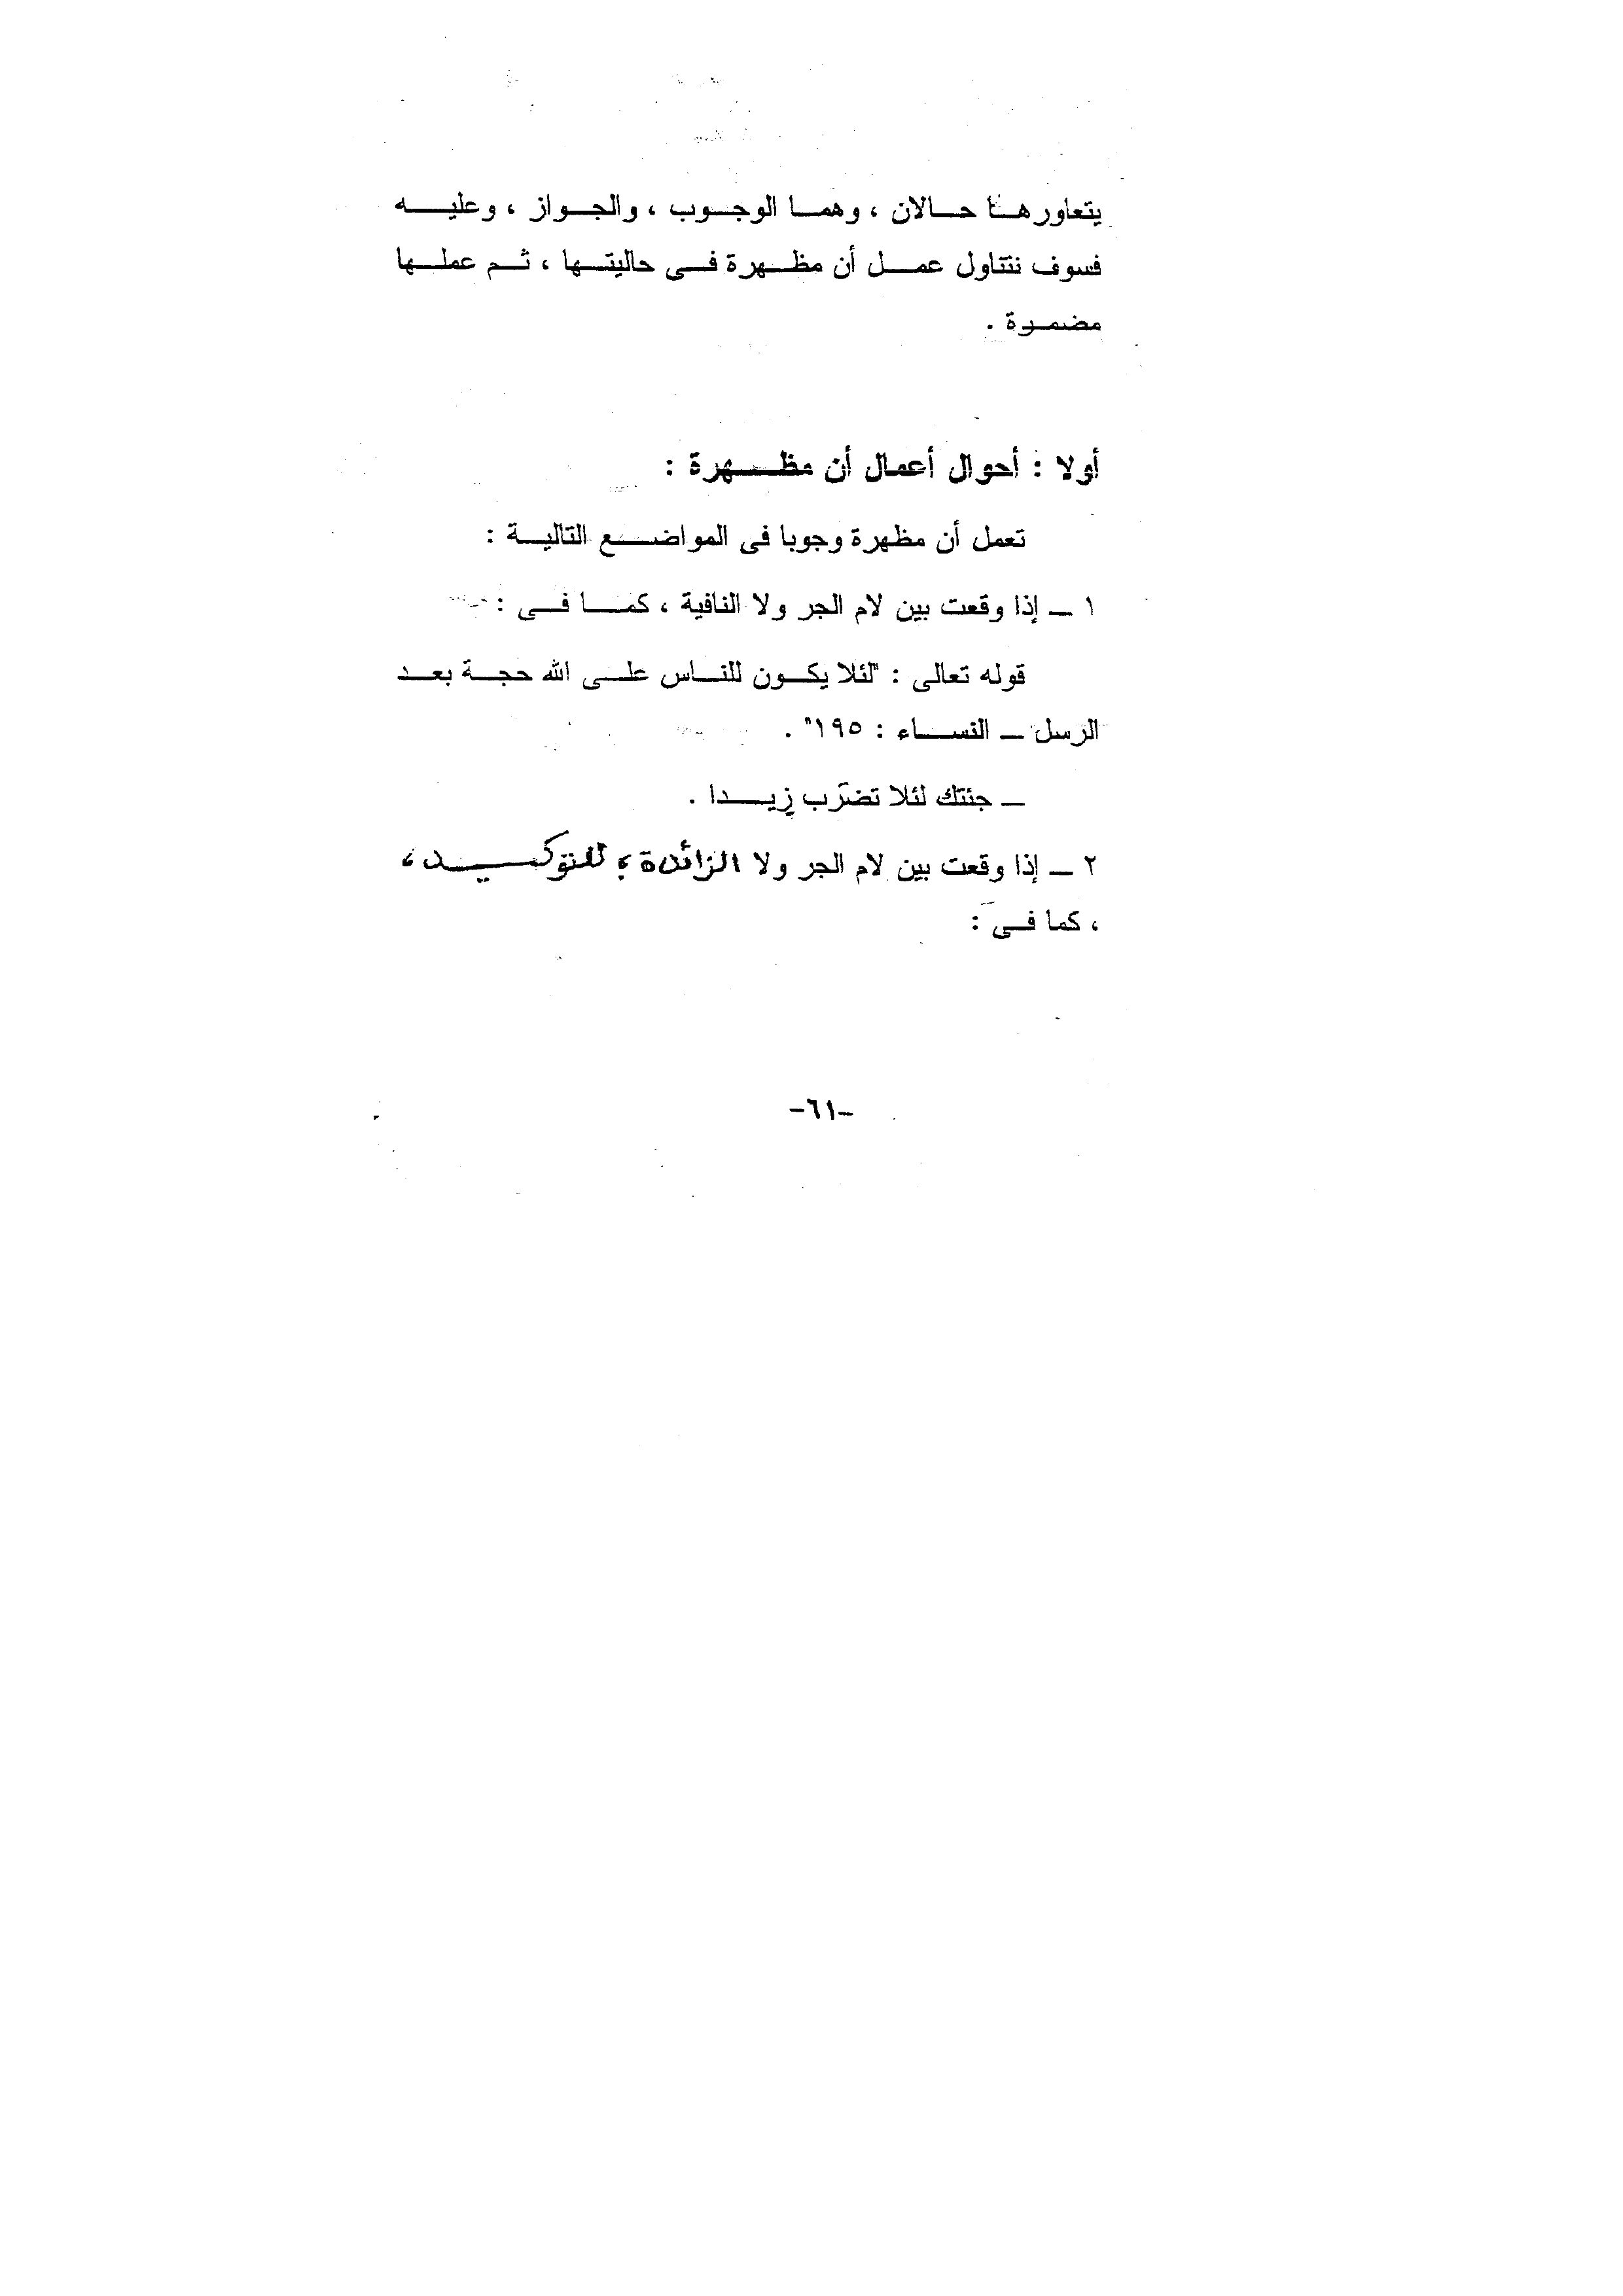 يتعاورها حالان ، وهما الوجوب ، والجواز ، وعليه
فسوف نتناول عمل أن مظهرة فى حاليتها ، ثم عملها
مضمرة .
أولا : أحوال أعمال أن مظهرة :
تعمل أن مظهرة وجوبا فى المواضع التالية :
١ ــ إذا وقعت بين لام الجر ولا النافية ، كما فى :
قوله تعالى : "لئلا يكون للناس على الله حجة بعد
الرسل ــ النساء : ١٩٥" .
ــ جئتك لئلا تضرَب زيدا .
٢ ــ إذا وقعت بين لام الجر ولا الزائدة ، للتوكيد ،
، كما فى :
-٦١-